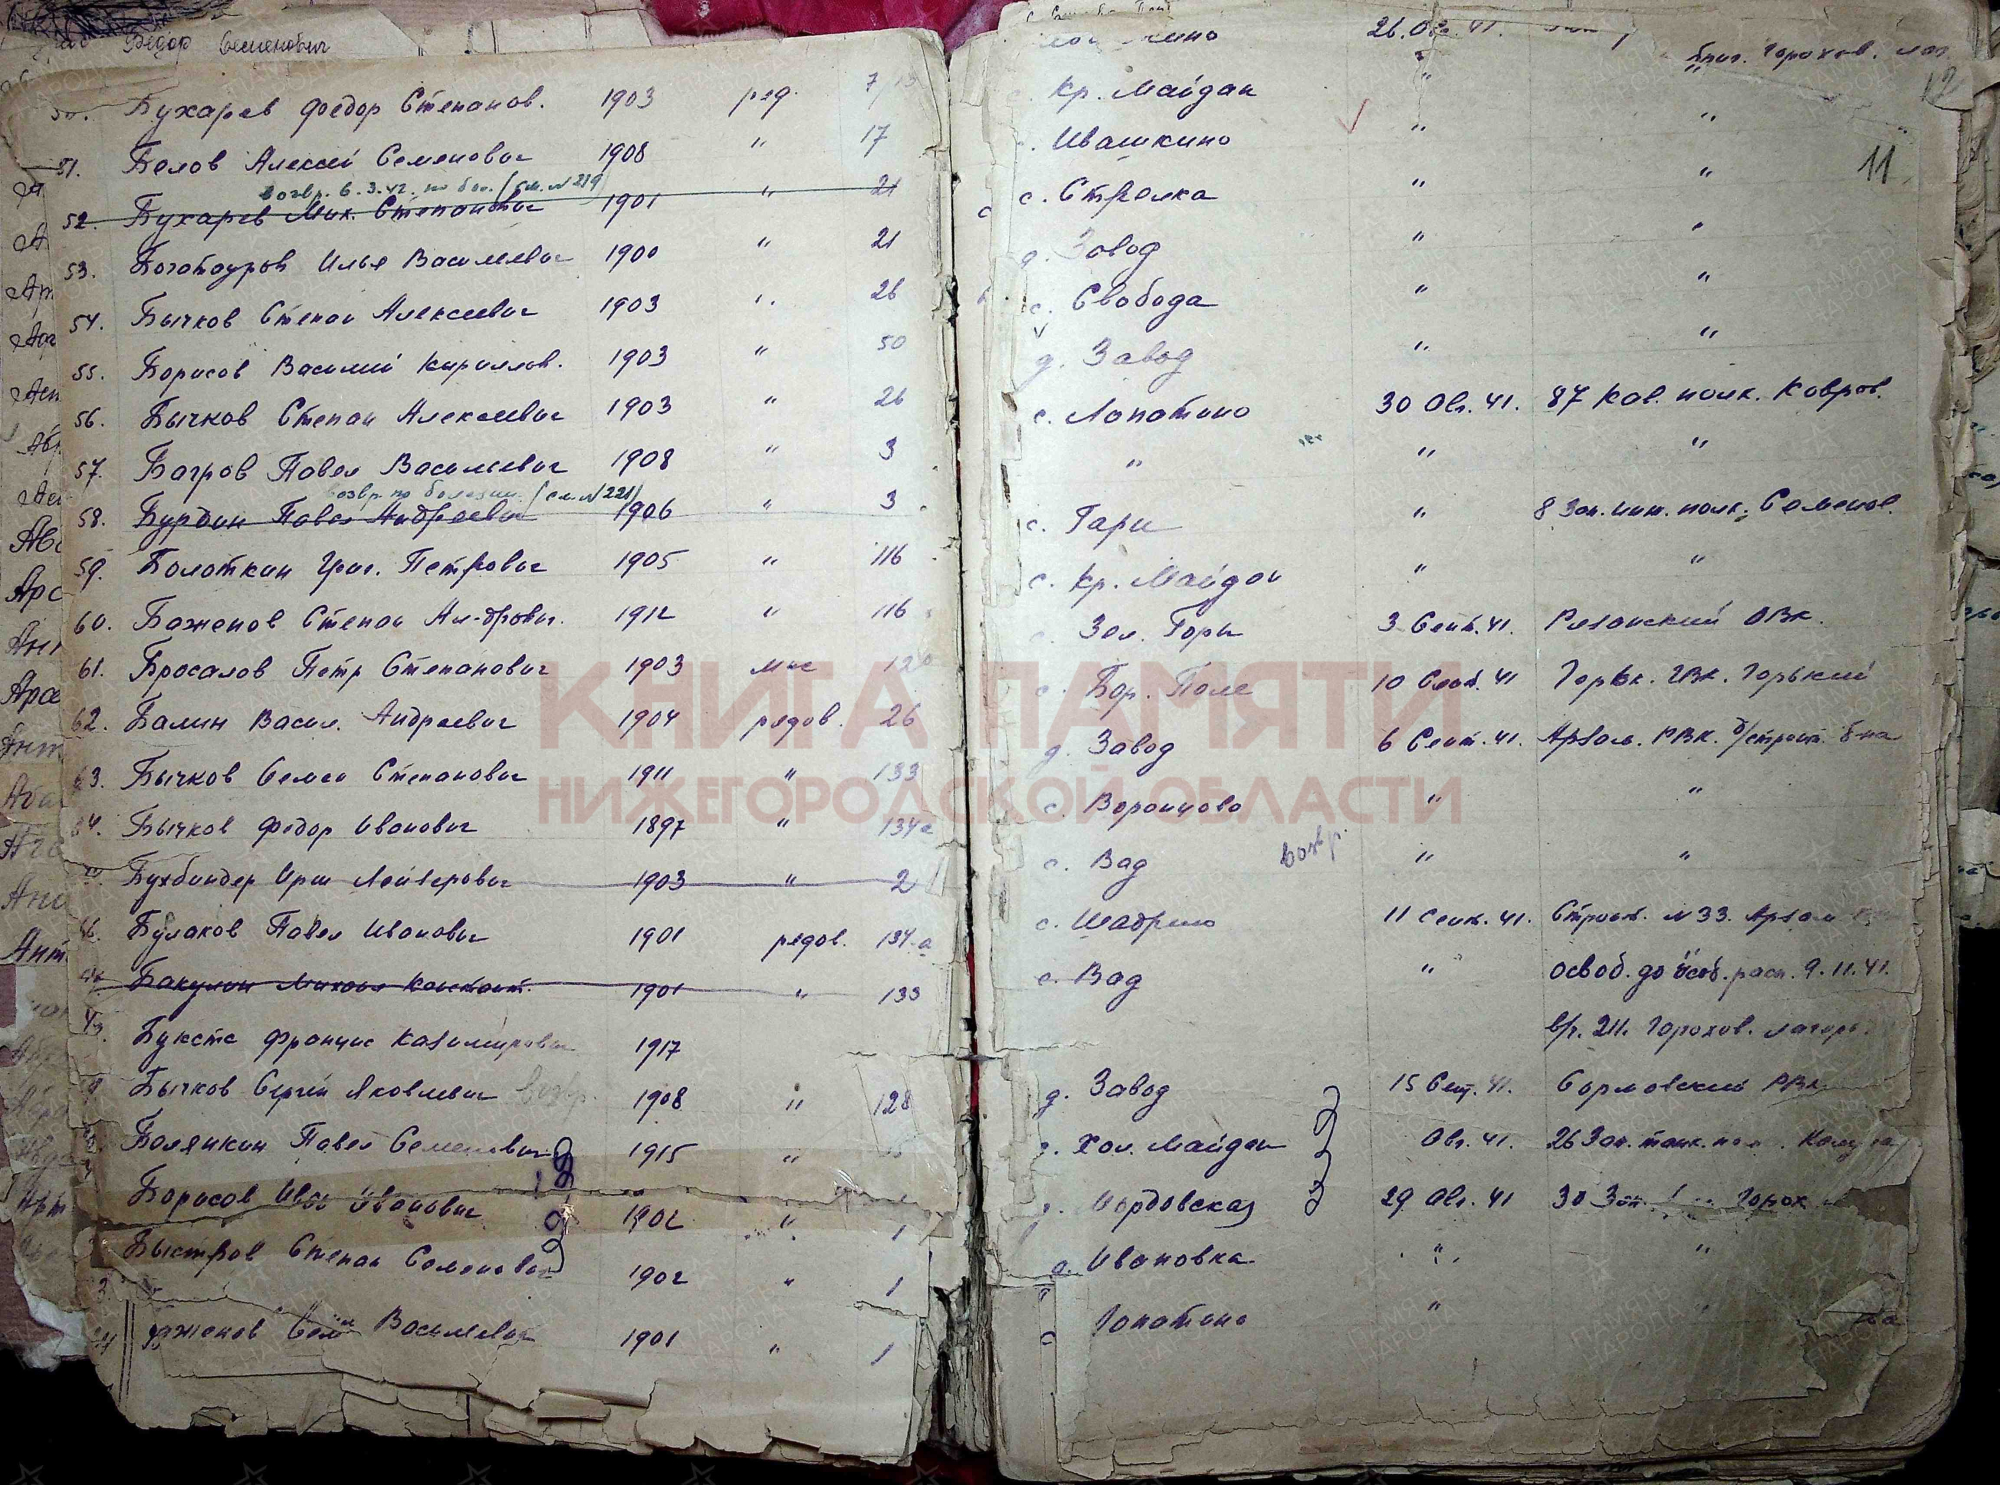 Федор Семенович
50. Бухарев Федор Степанов. 1903 ряд. 7/13
51. Белов Алексей Семенович 1908 " 17
возвр. 6.3.42. по бол. (см. № 219)
52. Бухарев Мих. Степанович 1901 " 21
53. Богатоуров Илья Васильевич 1900 " 21
54. Бычков Степан Алексеевич 1903 " 26
55. Борисов Василий Кириллов. 1903 " 50
56. Бычков Степан Алексеевич 1903 " 26
57. Багров Павел Васильевич 1908 " 3
возвр. по болезни (см. № 221)
58. Бурдин Павел Андреевич 1906 " 3
59. Болоткин Григ. Петрович 1905 " 116
60. Баженов Степан Ал-дрович. 1912 " 116
61. Бросалов Петр Степанович 1903 мнс 12
62. Балин Васил. Андреевич 1904 рядов. 26
63. Бычков Семен Степанович 1911 " 133
64. Бычков Федор Иванович 1897 " 134а
Бухбиндер Ирш Лейзерович 1903 " 2
66. Булаков Павел Иванович 1901 рядов. 134-а
Бакулин Михаил Констант. 1901 " 133
Букстс Францис Казимирович 1917
Бычков Сергей Яковлевич возвр. 1908 " 128
Болянкин Павел Семенович 1915 "
Борисов Иван Иванович 1902 " 1
Быстров Степан Семенович 1902 " 1
Баженов Семен Васильевич 1901 " 1
26. Авг. 41.
Ариг. Горохов. лаг.
12
Кр. Майдан " "
с. Ивашкино " "
11
с. Стрелка " "
д. Завод " "
с. Свобода " "
д. Завод " "
с. Лопатино 30 Авг. 41. 87 Кав. полк. Ковров.
" " "
с. Гари " 8 Зап. инж. полк. Семенов.
с. Кр. Майдан " "
Зел. Горы 3 Сент. 41. Рязанский ОВК.
с. Бор. Поле 10 Сент. 41 Горвк. ГВК. Горький
д. Завод 6 Сент. 41. Арзам. РВК. д/строит. б-на
с. Воронцово " "
с. Вад возвр. " "
с. Шадрино 11 Сент. 41. Строит. №33. Арзам
с. Вад " освоб. до особ. расп. 9.11.41.
в/ч. 211. Горохов. лагерь
д. Завод 15 Сент. 41. Сормовский РВК
Хол. Майдан Авг. 41. 26 Зап. танк. Калуга
д. Мордовская 29 Авг. 41 30 Зап. Горох.
д. Ивановка " "
Лопатино "
КНИГА ПАМЯТИ
НИЖЕГОРОДСКОЙ ОБЛАСТИ